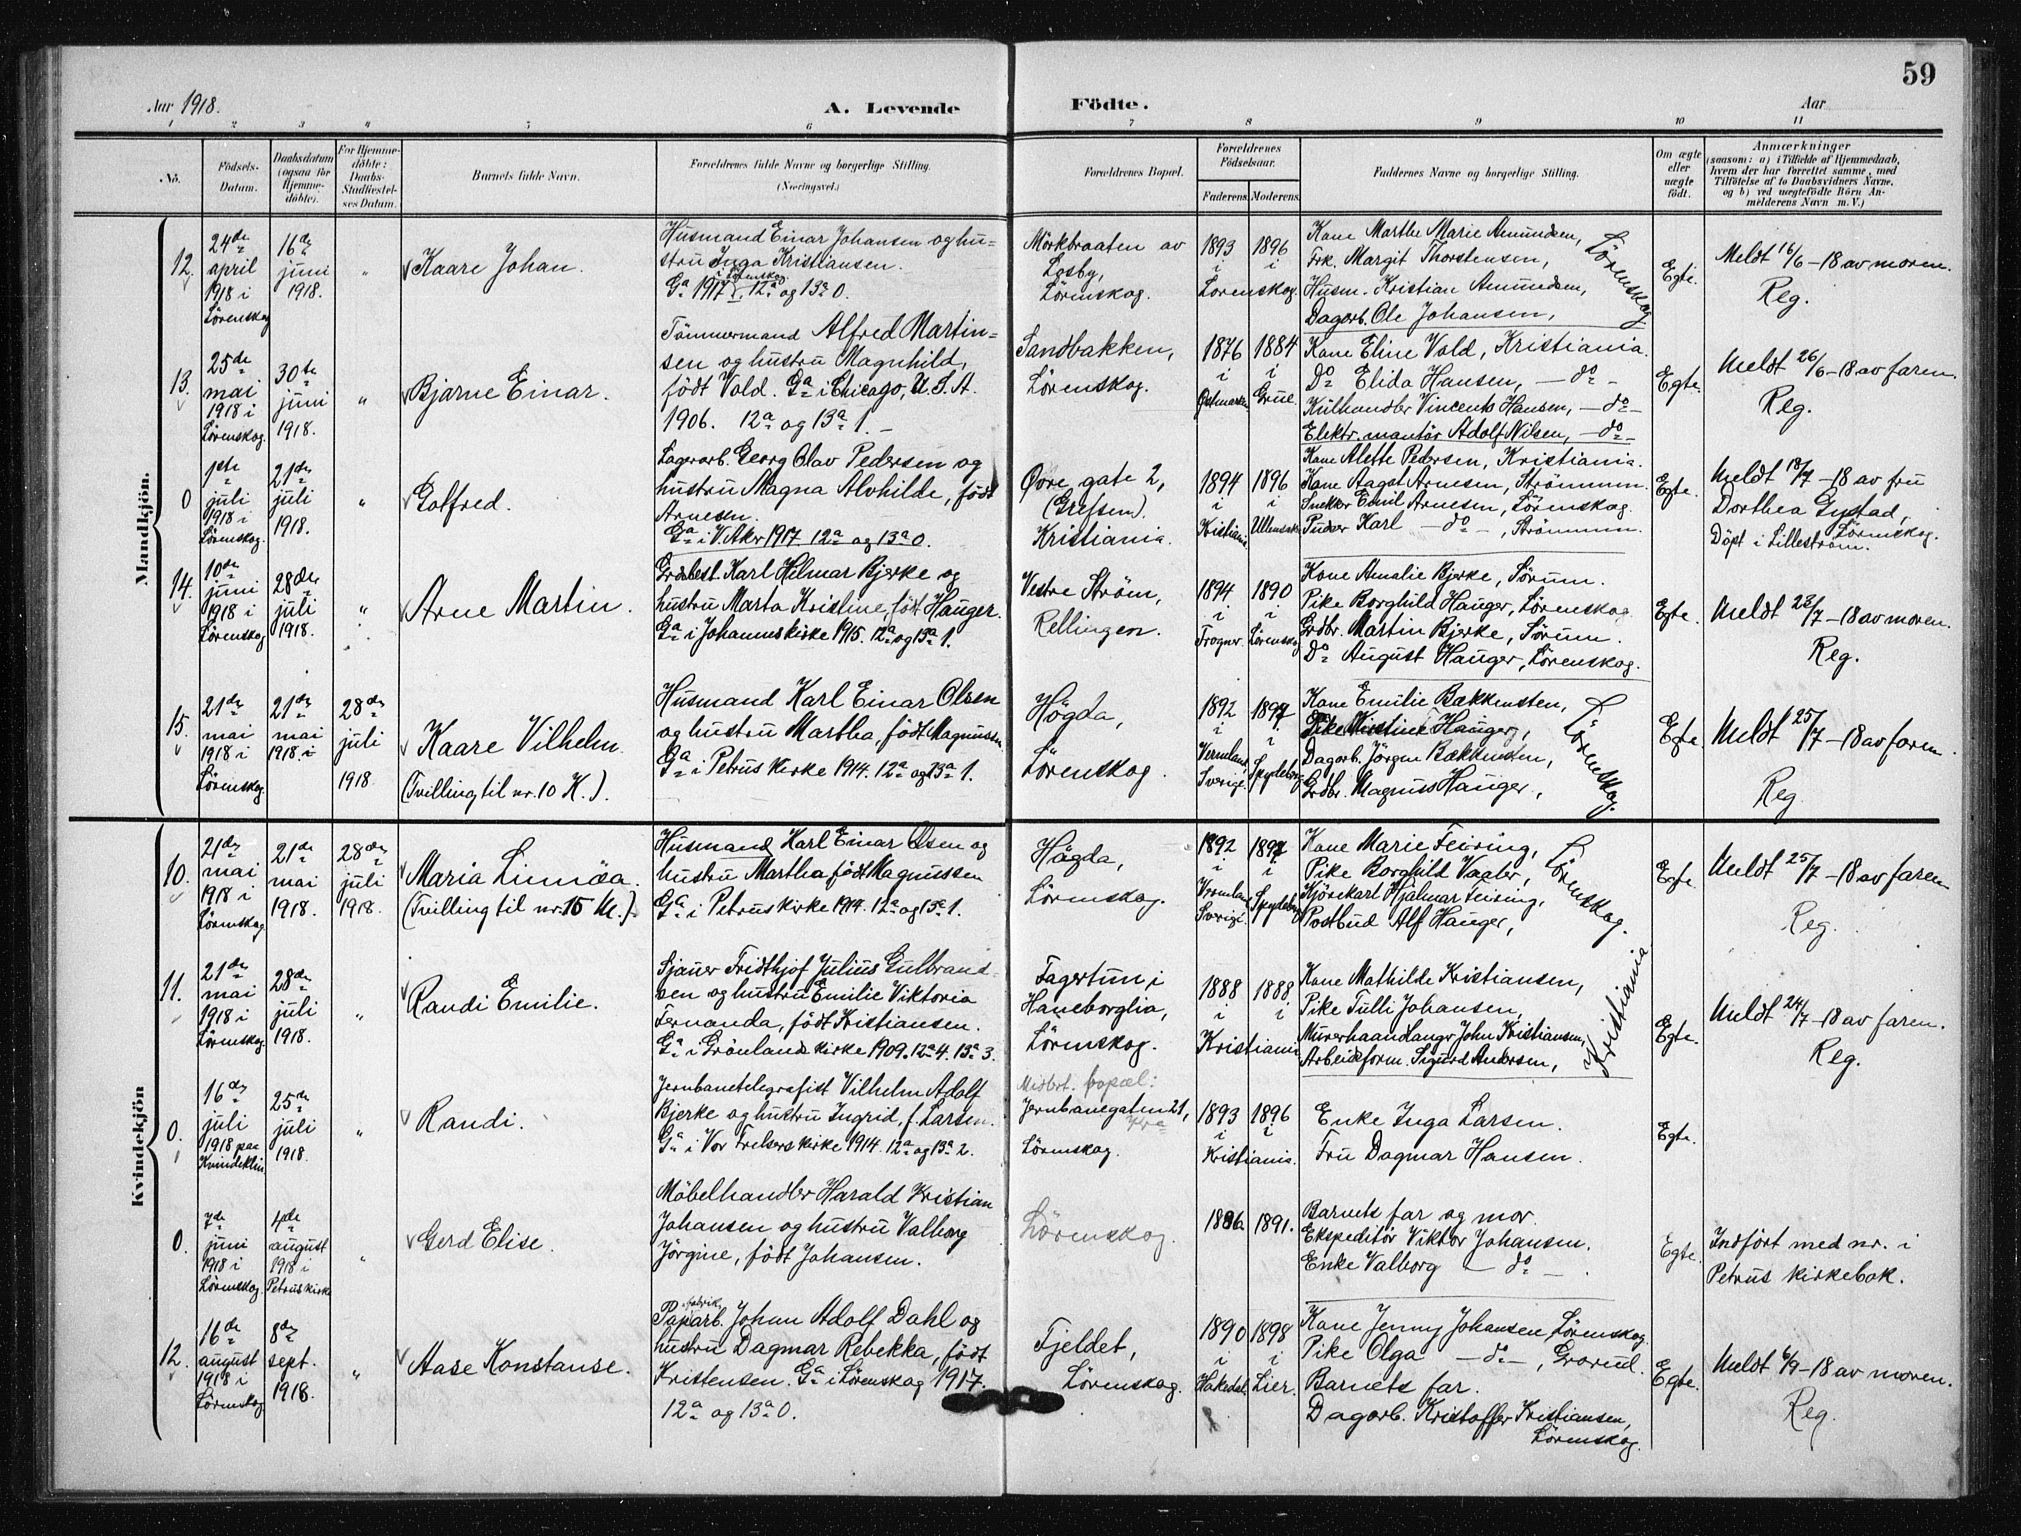 59
Aar 1918.
A. Levende
Födte.
Aar
1 2 3 4 5 6 7 8 9 10 11
No.
Födsels-
Datum.
Daabsdatum
(ogsaa for
Hjemme-
döbte).
For Hjemme-
döbte:
Daabs-
Stadfæstel-
ses Datum.
Barnets fulde Navn.
Forældrenes fulde Navne og borgerlige Stilling.
(Næringsvei.)
Forældrenes Bopæl.
Forældrenes
Födselsaar.
Faderens.
Moderens.
Faddernes Navne og borgerlige Stilling.
Om ægte
eller
uægte
födt.
Anmærkninger
(saasom: a) i Tilfælde af Hjemmedaab,
hvem der har forrettet samme, med
Tilföielse af to Daabsvidners Navne,
og b) ved uægtefödte Börn An-
melderens Navn m. V.)
Mandkjön.
12.
24de
april
1918 i
Lörenskog
16de
juni
1918.
"
Kaare Johan.
Husmand Einar Johansen og hu-
stru Inga Kristiansen.
Ga 1917 i Lörenskog 12a og 13a 0.
Mörkbraaten av
Losby,
Lörenskog.
1893
i
1896
i
Lorenskog.
Kone Marthe Marie Amundsen,
Frk. Margit Thorstensen,
Husm. Kristian Amundsen,
Dagarb. Ole Johansen,
Lörenskog
Egte.
Meldt 16/6-18 av moren.
Reg.
13.
25de
mai
1918 i
Lörenskog.
30te
juni
1918.
"
Bjarne Einar.
Tömmermand Alfred Martin-
sen og hustru Magnhild,
födt Vold. Ga i Chicago, U.S.A.
1906. 12a og 13a 1. -
Sandbakken,
Lörenskog.
1876
i
Östmarken
1884
i
Grue.
Kone Eline Vold, Kristiania.
Do Elida Hansen, - do -
Kulhandler Vincents Hansen, - do -
Elektr. mantör Adolf Nilsen, - do -
Egte.
Meldt 26/6-18 av faren.
Reg.
0
1ste
juli
1918 i
Lörenskog.
21de
juli
1918.
"
Golfred.
Lagerarb. Georg Olav Pedersen og
hustru Magna Alvhilde, födt
Arnesen.
Ga i V. Aker 1917 12a og 13a 0.
Övre gate 2,
(Grefsen).
Kristiania.
1894
i
Kristiania
1896
i
Ullensaker
Kone Alette Pedersen, Kristiania.
Kone Aagot Arnesen, Strömmen
Snekker Emil Arnesen, Lörenskog.
Pudser Karl - do -, Strömmen.
Egte.
Meldt 18/7-18 av fru
Dorthea Gystad,
Lörenskog.
Döpt i Lilleström.
14.
10de
juni
1918 i
Lörenskog
28de
juli
1918.
"
Arne Martin.
Grdbest. Karl Hilmar Bjerke og
hustru Marta Kristine, födt Hauger.
Ga i Johanneskirke 1915. 12a og 13a 1.
Vestre Ström,
Rellingen.
1894
i
Frogner
1890
i
Lörenskog
Kone Amalie Bjerke, Sörum.
Pike Borghild Hauger, Lörenskog
Grdbr. Martin Bjerke, Sörum.
Do August Hauger, Lörenskog.
Egte.
Meldt 28/7-18 av moren.
Reg.
15.
21de
mai
1918 i
Lörenskog.
21de
mai
1918. i
28de
juli
1918.
Kaare Vilhelm.
(Tvilling til nr. 10 K.).
Husmand Karl Einar Olsen
og hustru Martha, födt Magnussen
Ga i Petrus kirke 1914. 12a og 13a 1.
Högda,
Lörenskog.
1892
i
Vermland,
Sverige.
1897
i
Spydeberg
Kone Emilie Bækkensten,
Pike Kristine Hauger,
Dagarb. Jörgen Bækkensten,
Grdbr. Magnus Hauger,
Lörenskog.
Egte.
Meldt 25/7-18 av faren.
Reg.
Kvindekjön
10.
21de
mai
1918 i
Lörenskog
21de
mai
1918.
28de
juli
1918.
Maria Linnéa.
(Tvilling til nr. 15 M.).
Husmand Karl Einar Olsen og
hustru Martha födt Magnussen
Ga i Petrus kirke 1914. 12a og 13a 1.
Högda,
Lörenskog.
1892
i
Vermland
Sverige.
1897
i
Spydeberg
Kone Marie Feiring,
Pike Borghild Vaaler,
Kjörekarl Hjalmar Feiring,
Postbud Alf Hauger,
Lörenskog.
Egte.
Meldt 25/7-18 av faren
Reg.
11.
21de
mai
1918 i
Lörenskog
28de
juli
1918.
"
Randi Emilie.
Sjauer Fridthjof Julius Gulbrand-
sen og hustru Emilie Viktoria
Fernanda, födt Kristiansen.
Ga i Grönlands kirke 1909. 12a 4. 13a 3.
Fagertun i
Haneborglia,
Lörenskog.
1888
i
1888
i
Kristiania
Kone Mathilde Kristiansen,
Pike Tulli Johansen,
Murerhaandlanger John Kristiansen,
Arbeidsform. Sigurd Andersen,
Kristiania
Egte.
Meldt 24/7-18 av faren.
Reg.
0.
16de
juli
1918 paa
Kvindeklin.
25de
juli
1918.
"
Randi.
Jernbanetelegrafist Vilhelm Adolf
Bjerke og hustru Ingrid, f. Larsen.
Ga i Vor Frelsers kirke 1914. 12a og 13a 2.
Midlert. bopæl:
Jernbanegaten 21,
Kra
Lörenskog.
1893
i
1896
i
Kristiania.
Enke Inga Larsen.
Fru Dagmar Hansen.
Egte.
0.
7de
juni
1918 i
Lörenskog.
4de
august
1918 i
Petrus kirke
"
Gerd Elise.
Möbelhandler Harald Kristian
Johansen og hustru Valborg
Jörgine, födt Johansen.
Lörenskog.
1886
1891.
Barnets far og mor.
Ekspeditör Viktor Johansen.
Enke Valborg - do -.
Egte.
Indfört med nr. i
Petrus kirkebok.
12.
16de
august
1918 i
Lörenskog
8de
sept.
1918.
"
Aase Konstanse.
Papirfabrikarb. Johan Adolf Dahl og
hustru Dagmar Rebekka, födt
Kristensen. Ga i Lörenskog 1917.
12a og 13a 0.
Fjeldet,
Lörenskog.
1890
i
Hakedal
1898
i
Lier.
Kone Jenny Johansen Lörenskog.
Pike Olga - do -, Grorud.
Barnets far.
Dagarb. Kristoffer Kristiansen,
Lörenskog.
Egte.
Meldt 6/9-18 av moren.
Reg.